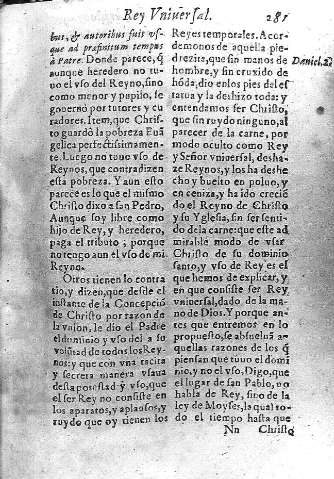 Rey Vniuersal.
281
bus, & autoribus fuit vs-
que ad præfinitum tempus
à Patre. Donde parece, q̃
aunque heredero no tu-
uo el vso del Reyno, sino
como menor y pupilo, se
gouernò por tutores y cu
radores. Item, que Chris-
to guardò la pobreza Euã
gelica perfectissimamen-
te. Luego no tuuo vso de
Reynos, que contradizen
esta pobreza. Y aun esto
parece es lo que el mismo
Christo dixo a san Pedro,
Aunque soy libre como
hijo de Rey, y heredero,
paga el tributo; porque
no tengo aun el vso de mi
Reyno.
Otros tienen lo contra
rio, y dizen, que desde el
instante de la Concepciõ
de Christo por razon de
la vnion, le dio el Padre
el dominio y vso del a su
voluntad de todos los Rey-
nos: y que con vna tacita
y secreta manera vsaua
desta potestad y vso, que
el ser Rey no consiste en
los aparatos, y aplausos, y
ruydo que oy tienen los
Reyes temporales. Acor-
demonos de aquella pie
drezita, que sin manos de
hombre, y sin cruxido de
hõda, dio en los pies de la es
tatua y la deshizo toda: y
entendamos ser Christo,
que sin ruydo ninguno, al
parecer de la carne, por
modo oculto como Rey
y Señor vniuersal, desha-
ze Reynos, y los ha deshe
cho, y buelto en poluo, y
en ceniza, y ha ido crecié
do el Reyno de Christo
y su Yglesia, sin ser senti-
do de la carne: que este ad
mirable modo de vsar
Christo de su dominio
santo, y vso de Rey es el
que hemos de explicar, y
en que consiste ser Rey
vniuersal, dado de la ma-
no de Dios. Y porque an-
tes que entremos en lo
propuesto, se absueluã a-
quellas razones de los q̃
piensan que tuuo el domi
nio, y no el vso, Digo, que
el lugar de san Pablo, no
habla de Rey, sino de la
ley de Moyses, la qual to-
do el tiempo hasta que
Nn Christo
Daniel. 2.